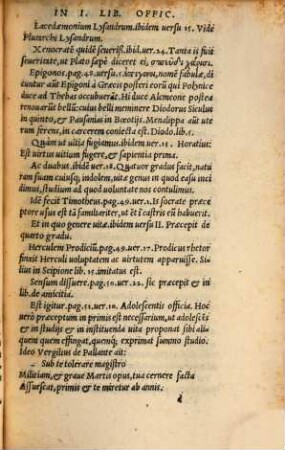 IN I. LIB. OFFIC.
Lacedæmonium Lysandrum. ibidem uersu 15. Vide
Plutarchi Lysandrum.
Xenocratē quidē seueriss. ibid.uer.24. Tanta is fuit
seueritate, ut Plato sæpe diceret ei,
Epigonos.pag.48.uersu.5. nomē fabulæ, di
cuntur aūt Epigoni à Græcis posteri eorū qui Polynice
duce ad Thebas occubuerūt. Hi duce Alcmeone posteà
renouarūt bellū: cuius belli meminere Diodorus Siculus
in quinto, & Pausanias in Bœotijs. Menalippa aūt ute
rum ferens, in carcerem coniecta est. Diodo.lib.5.
Quàm ut uitia fugiamus.ibidem uer 15. Horatius:
Est uirtus uitium fugere, & sapientia prima.
Ac duabus. ibid uer.18. Quatuor gradus facit, natu
ram suam cuiusq;, indolem, uitæ genus in quod casu inci
dimus, studium ad quod uoluntate nos contulimus.
Idē fecit Timotheus.pag.49.uer.1. Is Socrate præce
ptore usus est tā familiariter, ut ē castris eū habuerit.
Et in quo genere uitæ.ibidē uersu 11. Præcepit de
quarto gradu.
Herculem Prodiciū.pag.49.uer.17. Prodicus rhetor
finxit Herculi uoluptatem ac uirtutem apparuisse. Si-
lius in Scipione lib.15.imitatus est.
Sensum dissuere.pag.50.uer.22. sic præcepit & in
lib.de amicitia.
Est igitur.pag.51.uer.10. Adolescentis officia. Hoc ue
rò præceptum in primis est necessarium, ut adolescēs &
in studijs & in instituenda uita proponat sibi ali-
quem quem effingat, quemq; exprimat summo studio.
Ideo Vergilius de Pallante ait:
Sub te tolerare magistro
Militiam, & graue Martis opus, tua cernere facta
Assuescat, primis & te miretur ab annis.